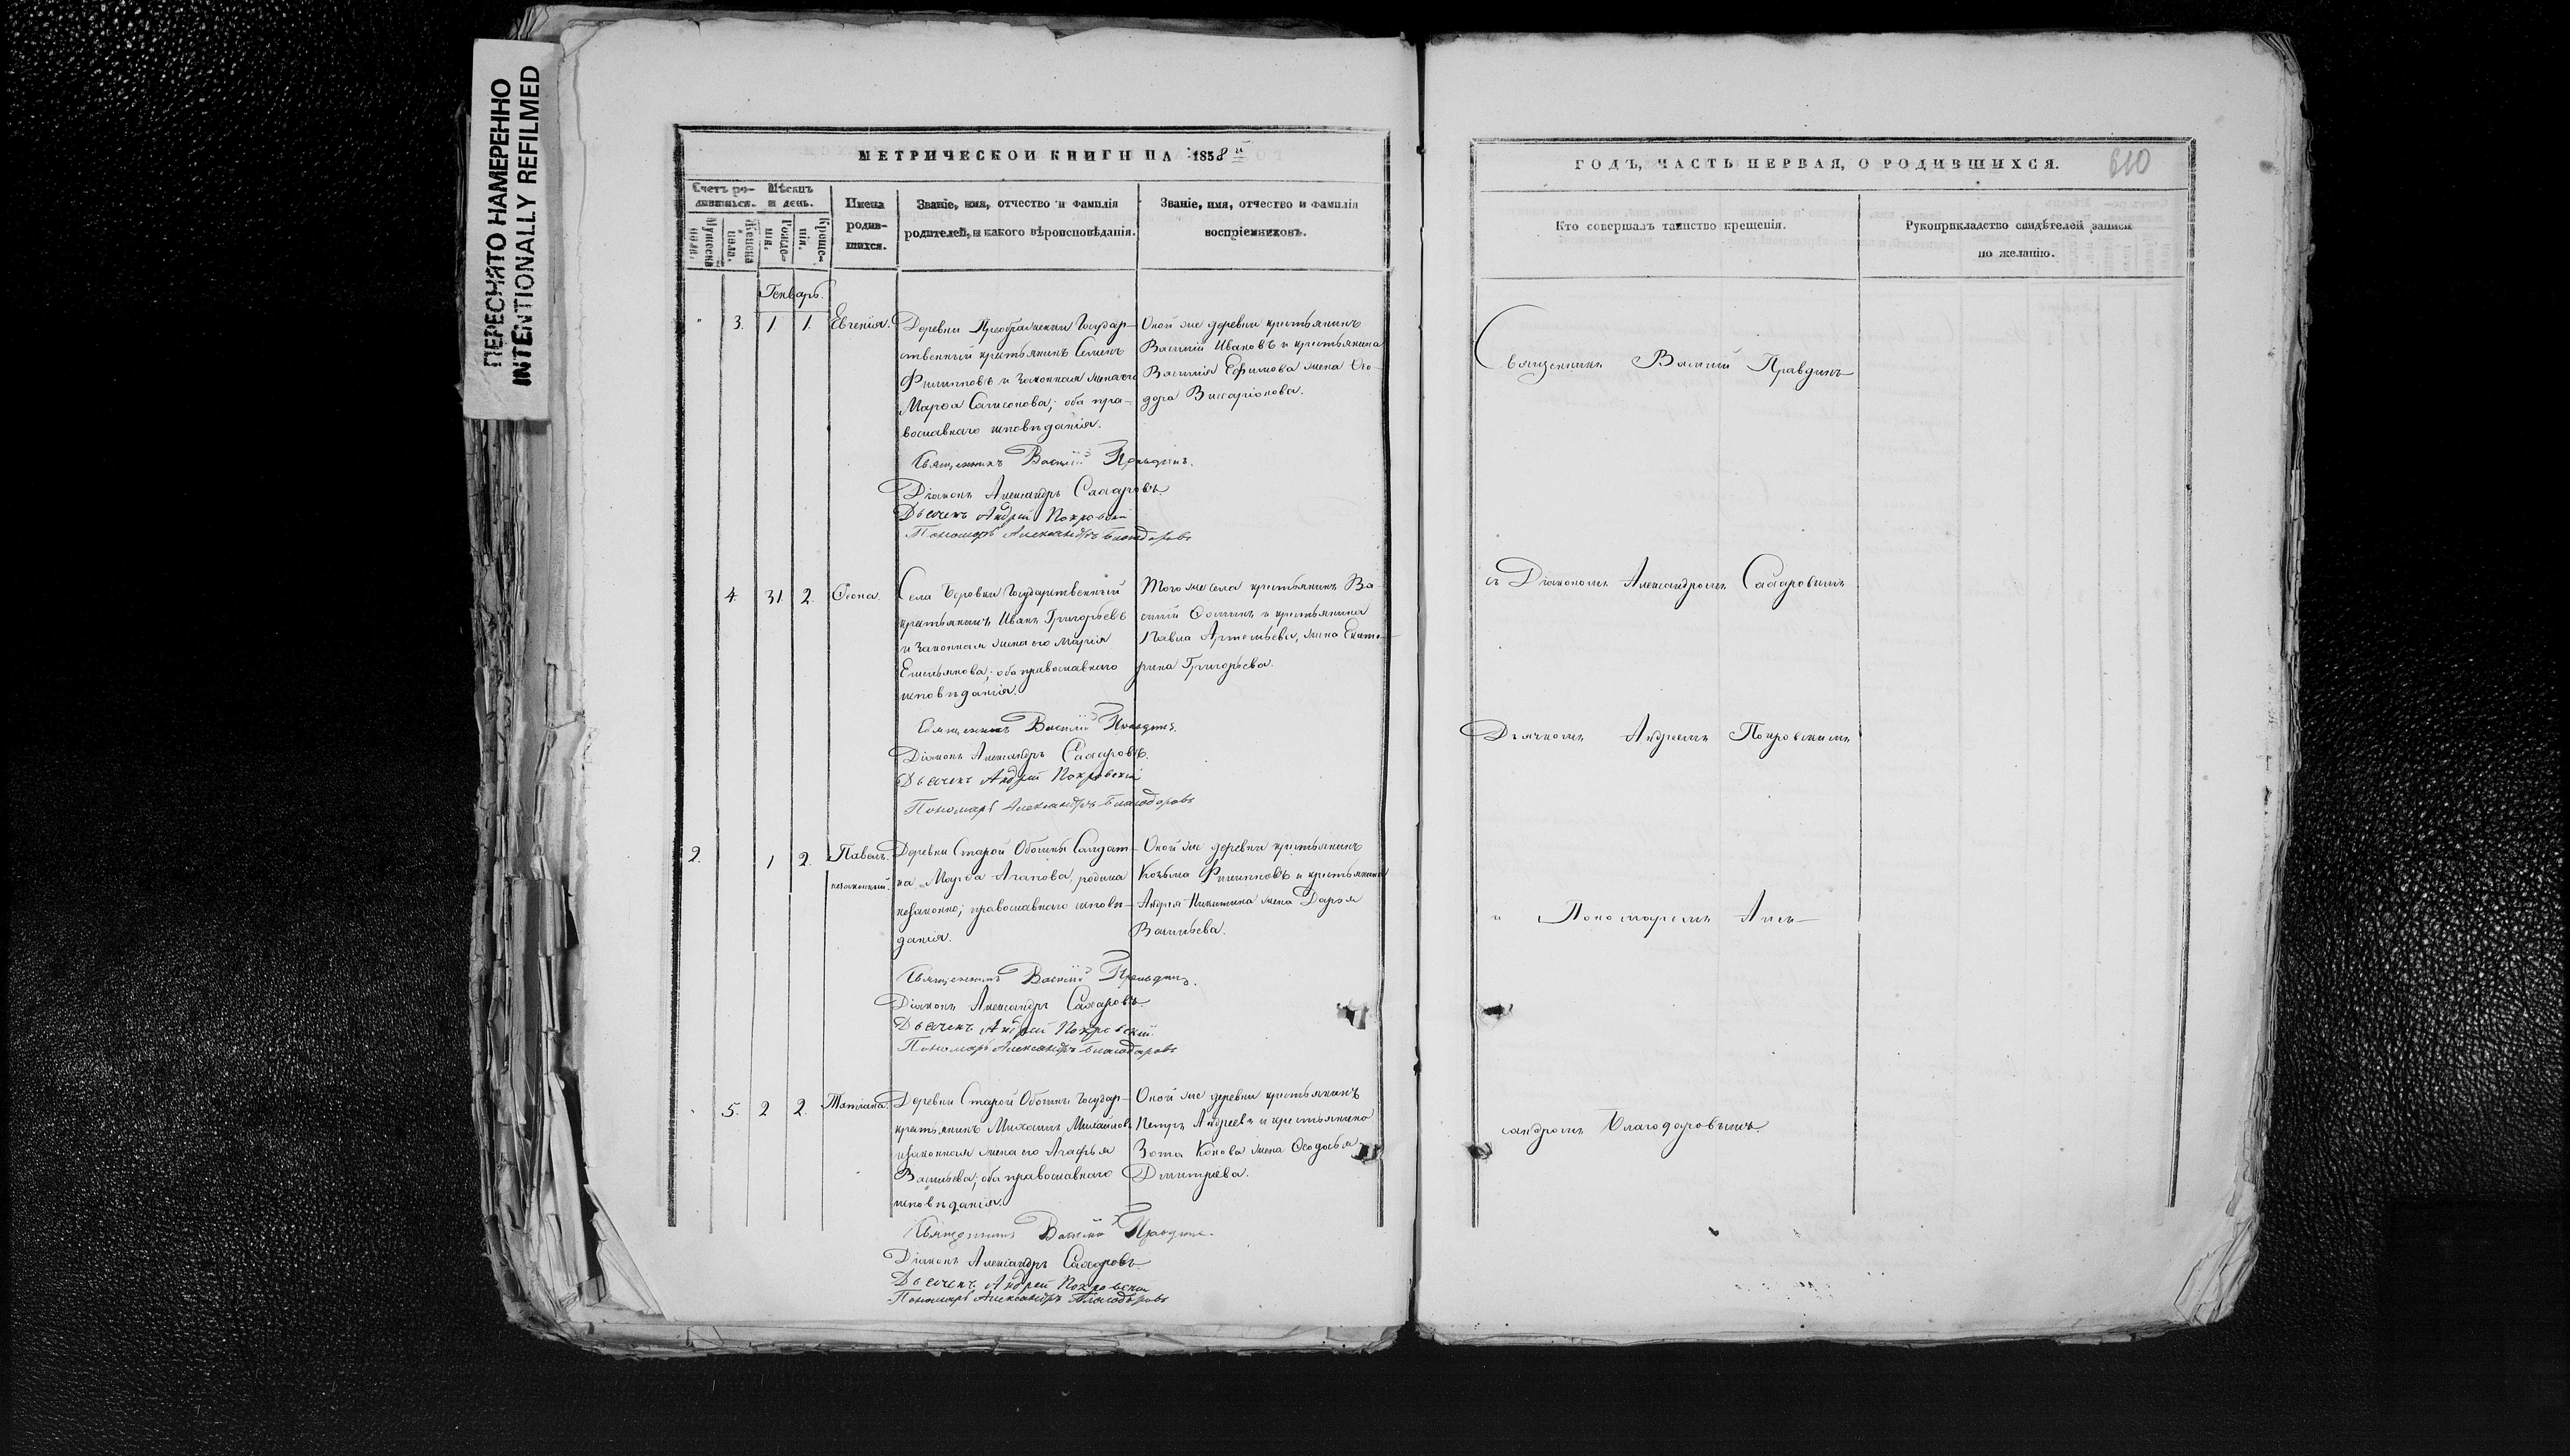 ПЕРЕСНЯТО НАМЕРЕННО
INTENTIONALLY REFILMED
МЕТРИЧЕСКОЙ КНИГИ НА 1858й
Счетъ ро-
дившихся.
Мѣсяцъ
и день.
Мужеска
пола.
Женска
пола.
Рожде-
нія.
Креще-
нія.
Имена
родив-
шихся.
Званіе, имя, отчество и фамилія
родителей, и какого вѣроисповѣданія.
Званіе, имя, отчество и фамилія
воспріемниковъ.
Генварь.
" 3. 1 1. Евгенія.
Деревни Преображенки Государ-
ственный крестьянинъ Семенъ
Филипповъ и законная жена его
Марѳа Самсонова; оба пра-
вославнаго исповѣданія.
Оной же деревни крестьянинъ
Василій Ивановъ и крестьянина
Василія Ефимова жена Ѳео-
дора Виссаріонова.
Священникъ Василій Правдинъ.
Діаконъ Александръ Сахаровъ.
Дьячекъ Андрей Покровскій
Пономарь Александръ Благодаровъ
4. 31 2. Ѳеона.
Села Боровки Государственный
крестьянинъ Иванъ Григорьевъ
и законная жена его Марія
Емельянова; оба православнаго
исповѣданія.
Того же села крестьянинъ Ва
силій Ѳоминъ и крестьянина
Павла Артемьева, жена Екате-
рина Григорьева.
Священникъ Василій Правдинъ.
Діаконъ Александръ Сахаровъ.
Дьячекъ Андрей Покровскій
Пономарь Александръ Благодаровъ
2. 1 2. Павелъ.
незаконный.
Деревни Старой Обошны Солдат-
ка Марѳа Агапова, родила
незаконно; православнаго исповѣ-
данія.
Оной же деревни крестьянинъ
Козьма Филипповъ и крестьянина
Андрея Никитина жена Дарья
Васильева.
Священникъ Василій Правдинъ.
Діаконъ Александръ Сахаровъ.
Дьячекъ Андрей Покровскій.
Пономарь Александръ Благодаровъ
5. 2 2. Татіана.
Деревни Старой Обошны Государ-
крестьянинъ Михаилъ Михайловъ
и законная жена его Агафья
Васильева; оба православнаго
исповѣданія.
Оной же деревни крестьянинъ
Петръ Андреевъ и крестьянина
Зота Конова жена Ѳеодосья
Дмитріева.
Священникъ Василій Правдинъ.
Діаконъ Александръ Сахаровъ.
Дьячекъ Андрей Покровскій
Пономарь Александръ Благодаровъ
ГОДЪ, ЧАСТЬ ПЕРВАЯ, О РОДИВШИХСЯ.
610
Кто совершалъ таинство крещенія.
Рукоприкладство свидѣтелей записи
по желанію.
Священникъ Василій Правдинъ
съ Діакономъ Александромъ Сахаровымъ
Дьячкомъ Андреемъ Покровскимъ
и Пономаремъ Алек-
сандромъ Благодаровымъ.